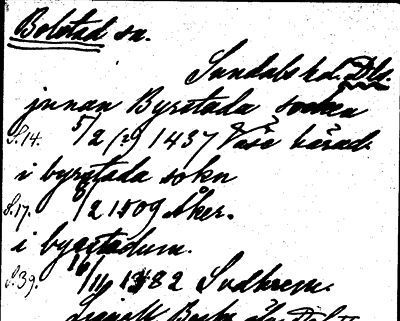 Bolstad sn.
Sundals hd. Dld.
junan Byrstada socken
S.14. 5/2 (?) 1437 Vase härad.
i byrstada sokn
S.17. 8/2 1509 Åker.
i byrstadum.
S.39. 16/11 1382 Sudhrem.